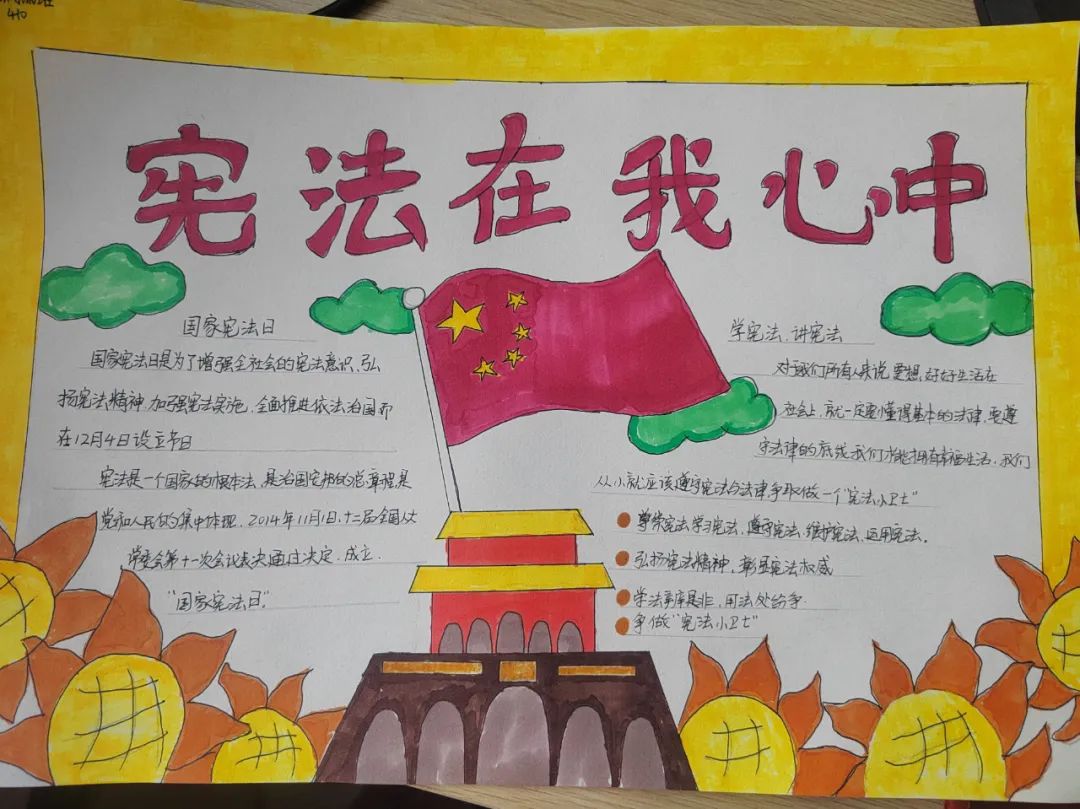 410
宪法在我心中
国家宪法日
国家宪法日是为了增强全社会的宪法意识、弘
扬宪法精神、加强宪法实施、全面推进依法治国而
在12月4日设立节日
宪法是一个国家的根本法，是治国安邦的总章程，是
党和人民的集中体现，2014年11月1日，十二届全国人大
常委会第十一次会议表决通过决定，成立
“国家宪法日”
学宪法、讲宪法
对我们所有人来说要想好好生活在
社会上，就一定要懂得基本的法律，要遵
守法律的底线，我们才能拥有幸福生活，我们
从小就应该遵守宪法与法律，争取做一个“宪法小卫士”
尊崇宪法，学习宪法，遵守宪法，维护宪法，运用宪法。
弘扬宪法精神，彰显宪法权威
学法事非，用法处纷争
争做“宪法小卫士”